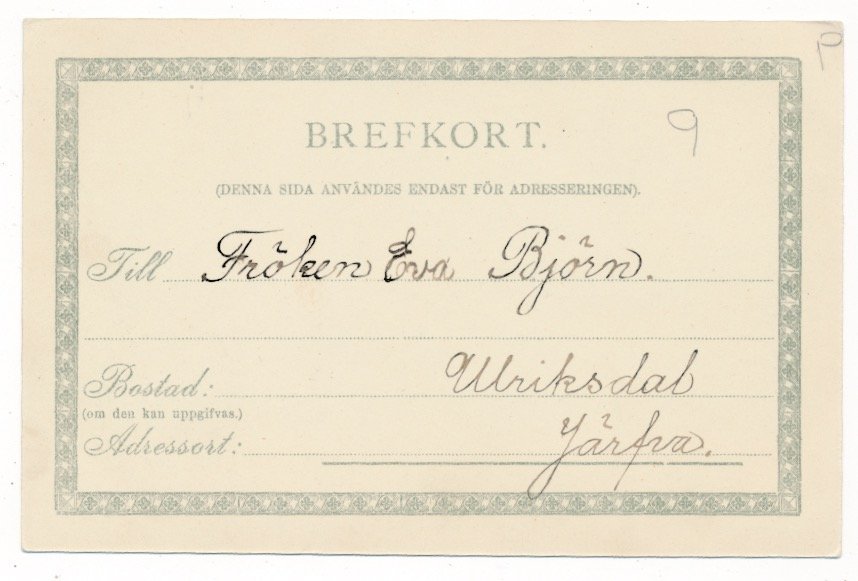 P
BREFKORT.
9
(DENNA SIDA ANVÄNDES ENDAST FÖR ADRESSERINGEN).
Till Fröken Eva Björn.
Bostad: Ulriksdal
(om den kan uppgifvas.)
Adressort: Järfva.